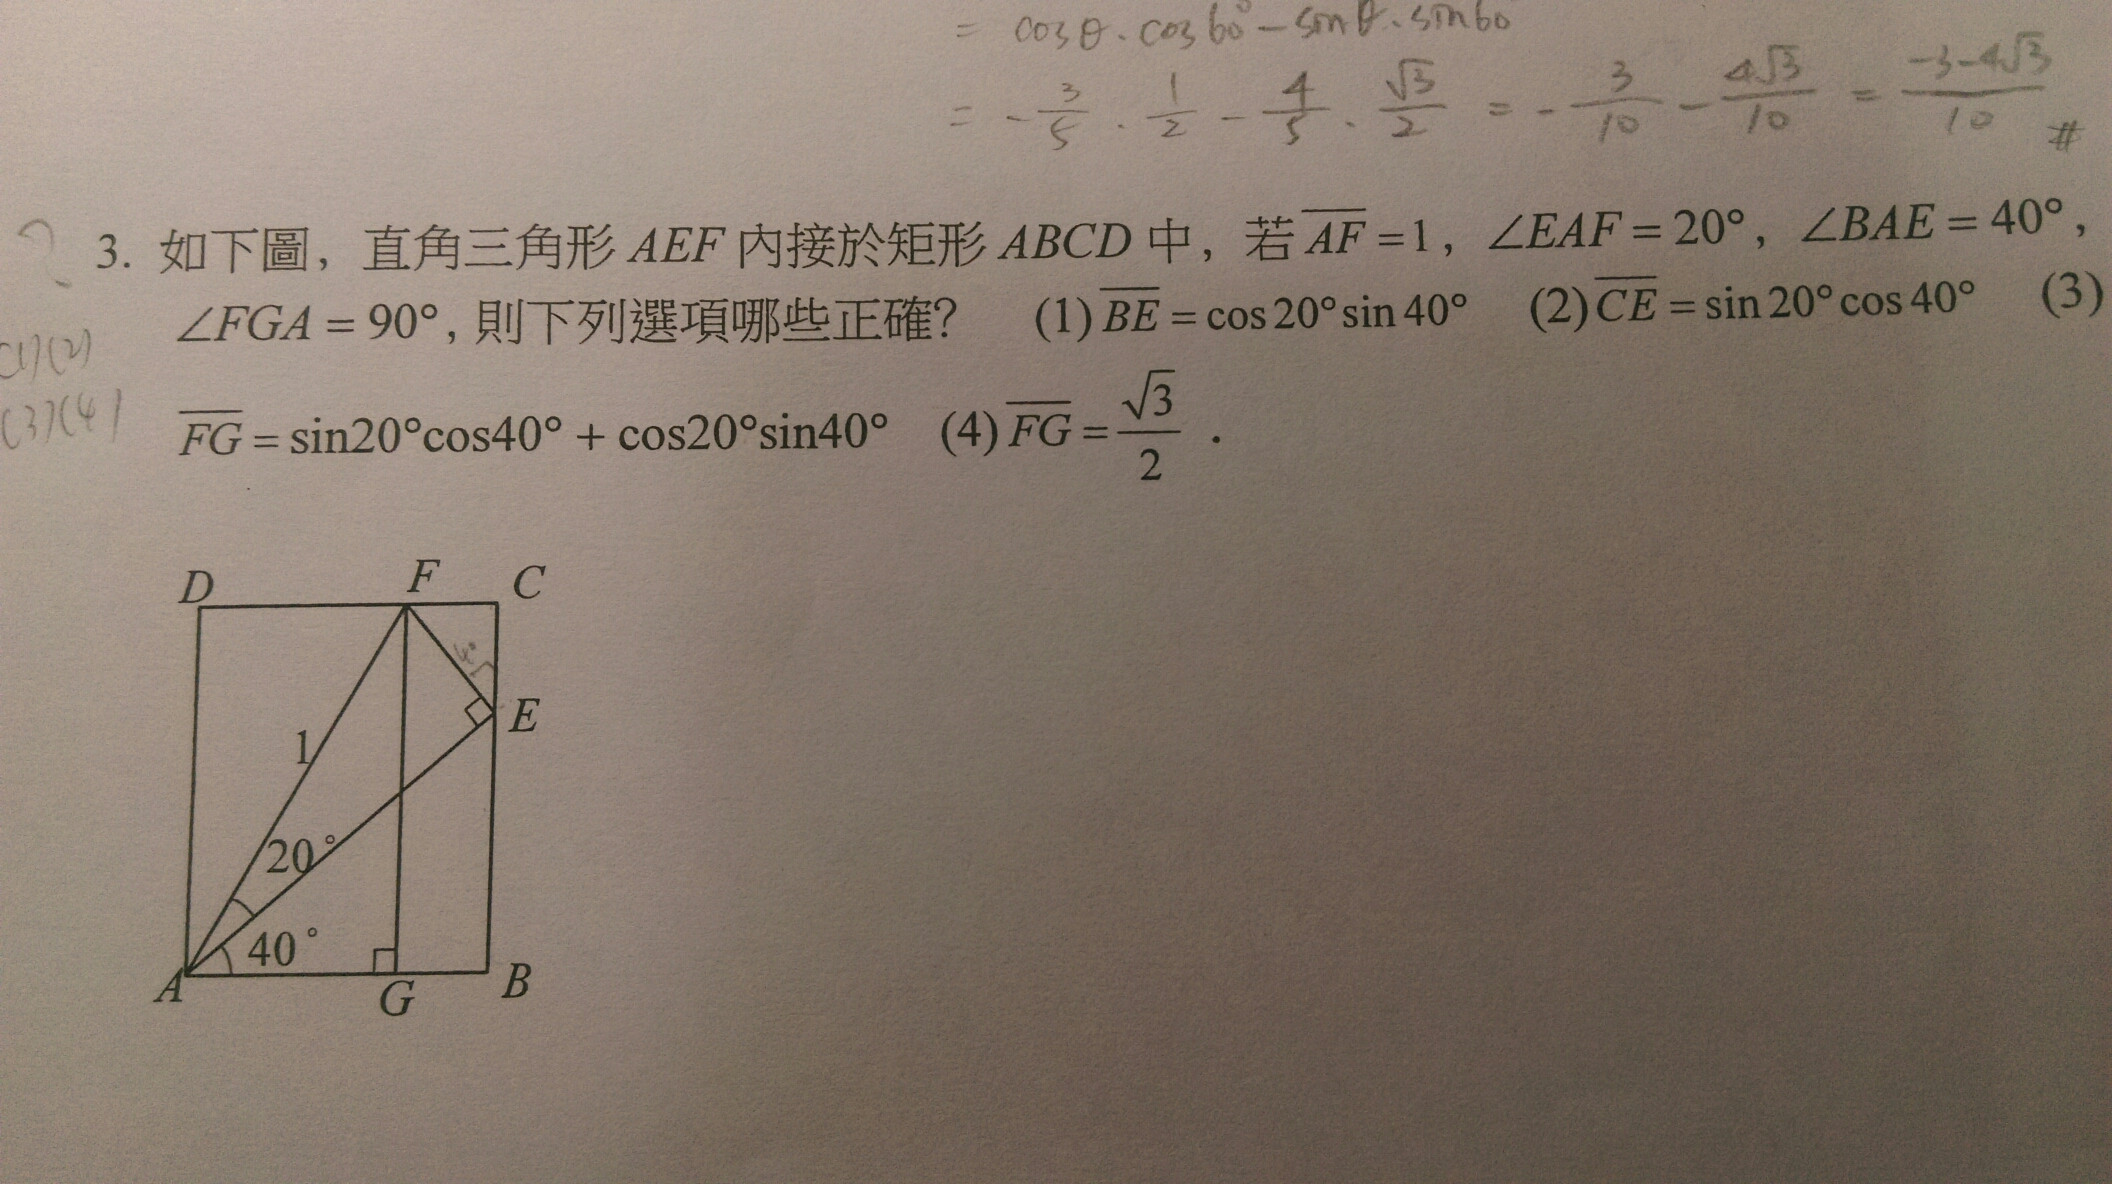 = cosθ · cos60° − sinθ · sin60
= − 3/5 · 1/2 − 4/5 · √3/2 = − 3/10 − 4√3/10 = −3−4√3/10 #
3. 如下圖，直角三角形 AEF 內接於矩形 ABCD 中，若 A̅F̅ =1，∠EAF = 20°，∠BAE = 40°，
∠FGA = 90°，則下列選項哪些正確？ (1) B̅E̅ = cos20°sin40° (2) C̅E̅ = sin20°cos40° (3)
F̅G̅ = sin20°cos40° + cos20°sin40° (4) F̅G̅ = √3/2 .
?
(1)(2)
(3)(4)
D F C
E
1
20°
40°
A G B